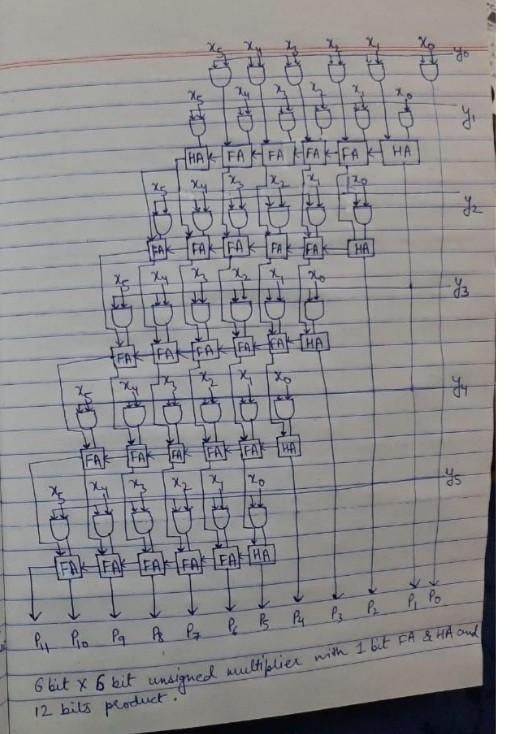 x5 x4 x3 x2 x1 x0 y0
x5 x4 x3 x2 x1 x0 y1
HA FA FA FA FA HA
x5 x4 x3 x2 x1 x0 y2
FA FA FA FA FA HA
x5 x4 x3 x2 x1 x0 y3
FA FA FA FA FA HA
x5 x4 x3 x2 x1 x0 y4
FA FA FA FA FA HA
x5 x4 x3 x2 x1 x0 y5
FA FA FA FA FA HA
P11 P10 P9 P8 P7 P6 P5 P4 P3 P2 P1 P0
6 bit X 6 bit unsigned multiplier with 1 bit FA & HA and
12 bits product.